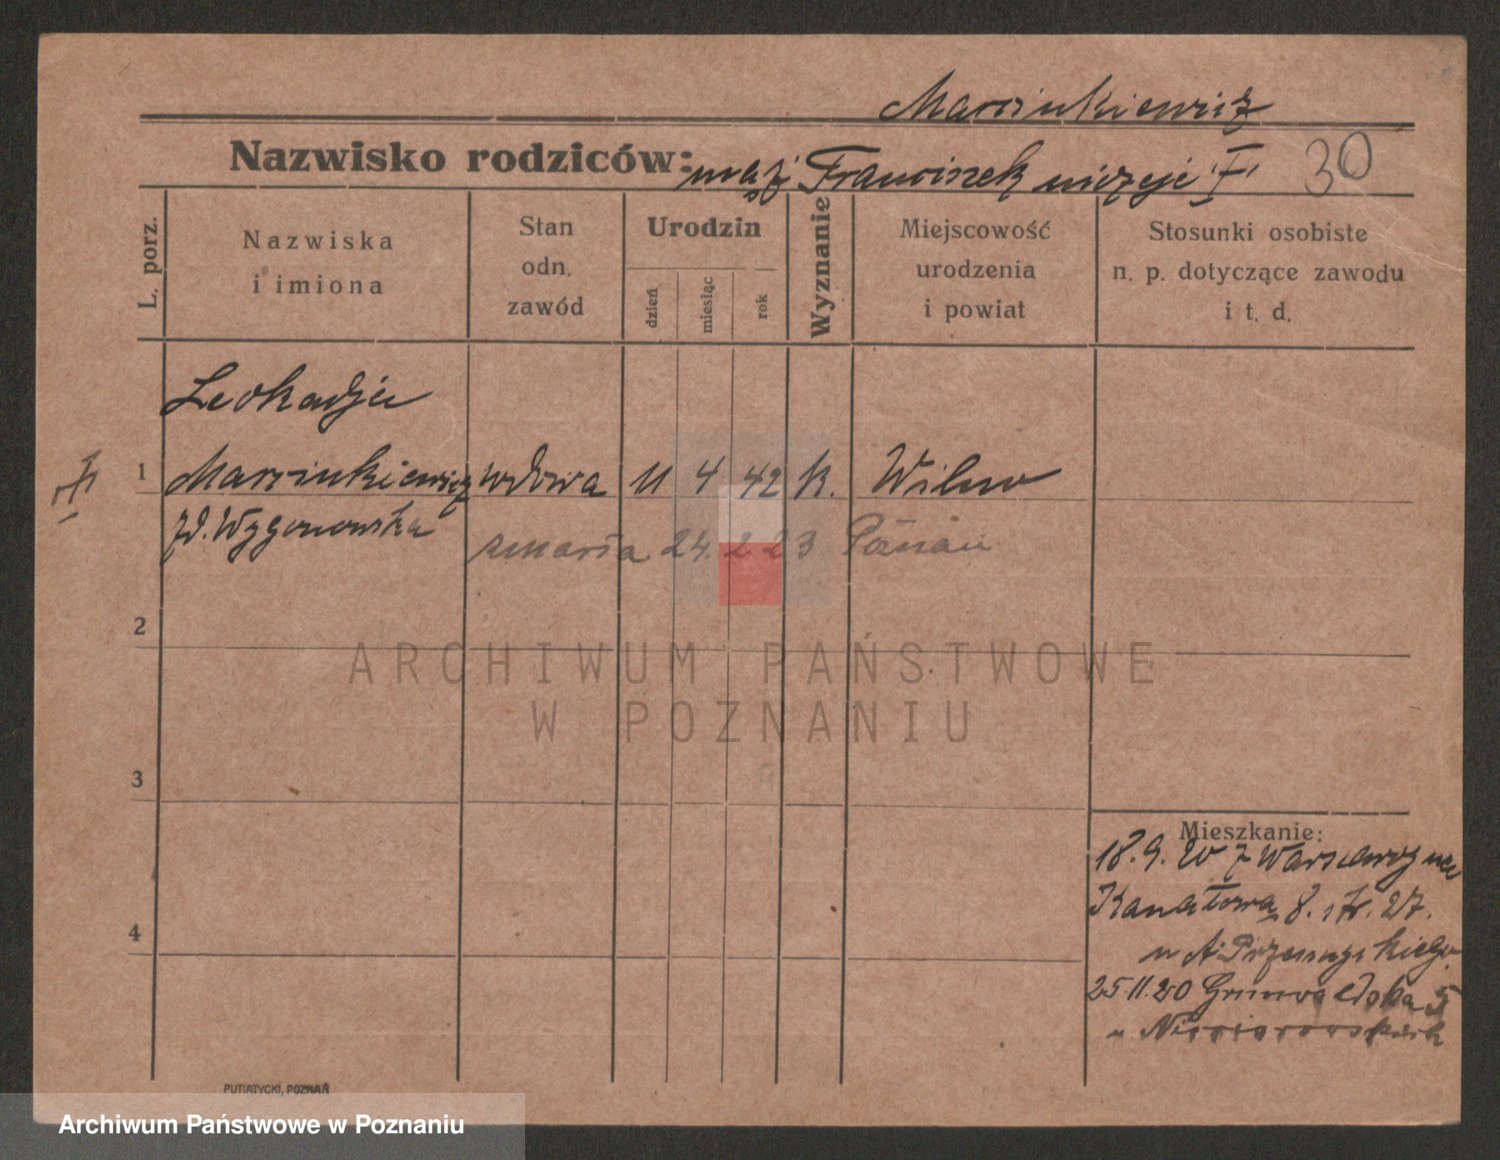 Marcinkiewicz
Nazwisko rodziców: mąż Franciszek 30
L. porz.
Nazwiska
i imiona
Stan
odn.
zawód
Urodzin
dzień
miesiąc
rok
Wyznanie
Miejscowość
urodzenia
i powiat
Stosunki osobiste
n. p. dotyczące zawodu
i t. d.
Leokadja
1 Marcinkiewicz wdowa 11 4 42 k. Wilno
zd. Wygonowska
zmarła 24. 2 23 Poznań
2
3
4
Mieszkanie:
18.9.20 z Warszawy
Kanałowa 8. 27.
u A.
25.11.20 Grunwaldska 5
u
PUTIATYCKI, POZNAŃ
ARCHIWUM PAŃSTWOWE
W POZNANIU
Archiwum Państwowe w Poznaniu